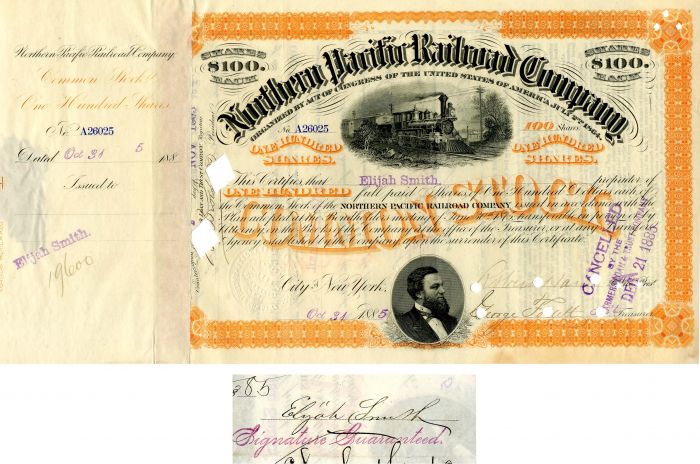 Northern Pacific Railroad Company
Common Stock
One Hundred Shares
No. A26025
Dated Oct 31 5 188
Issued to
Elijah Smith.
19600
SHARES
$100.
EACH
Northern Pacific Railroad Company,
SHARES
$100.
EACH
ORGANIZED BY ACT OF CONGRESS OF THE UNITED STATES OF AMERICA JULY 2ND 1864.
No. A26025
100 Shares
ONE HUNDRED
SHARES.
ONE HUNDRED
SHARES.
This Certifies that Elijah Smith. proprietor of
ONE HUNDRED full paid Shares of One Hundred Dollars each of
the Common Stock of the NORTHERN PACIFIC RAILROAD COMPANY issued in accordance with the
Plan adopted at the Bondholders meeting of June 30th 1875 transferable in person or by
the office of the Treasurer, or at any
Agency established by the Company upon the surrender of this Certificate.
COMMON STOCK
CANCELLED
BY THE
FARMERS LOAN & TRUST COMPANY
DEC 21 1885
City of New York,
Oct 31 1885
Prest
George
Treasurer
NOV
85
Elijah Smith
Signature Guaranteed.